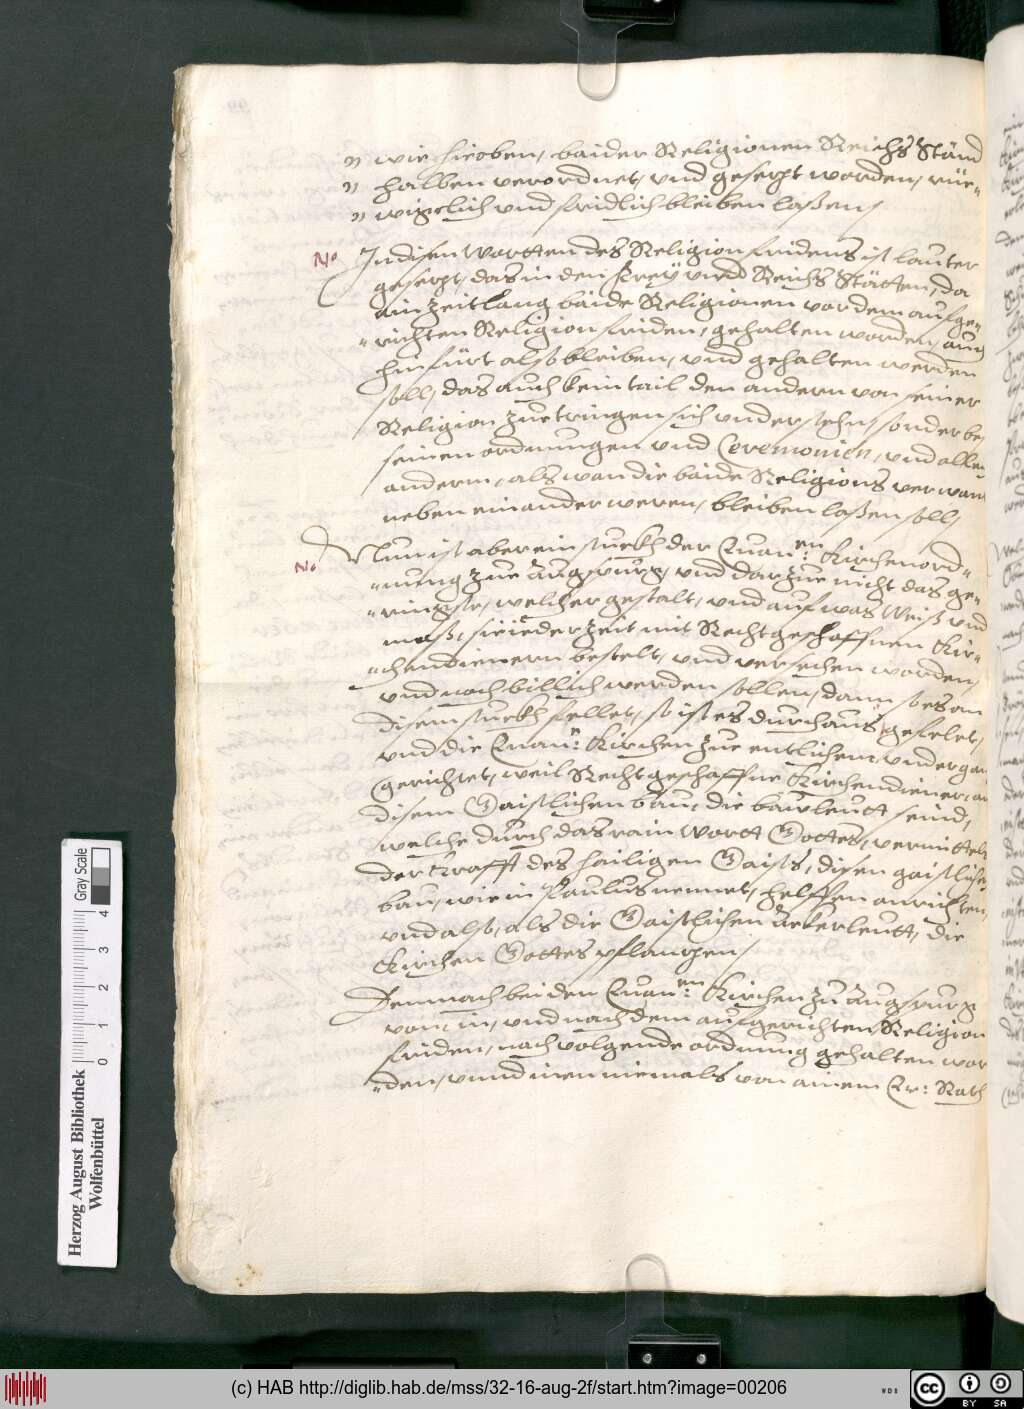 " wie hieoben, baider Religionen Reichs Ständ
" halben verordnet, vnd gesetzt worden, rüe-
" wigclich vnd fridlich bleiben laßen/
No Jn disen Wortten des Religion fridens ist lauter
gesetzt, das in den Frey vnd Reichs Stätten, da
ain Zeitlang baide Religionen vor dem aufge-
-richten Religion friden, gehalten worden, auch
hinfürt also bleiben, vnd gehalten werden
soll, das auch kein tail den andern von seiner
Religion Zue tringen sich vnderstehn, sonder bei
seinen ordnungen vnd Ceremonien, vnd allen
anderm, als wan die baide Religions verwant
neben einander weren, bleiben laßen soll/
No Nun ist aber ein stuckh der Euan:en Kirchenord-
-nung Zue Augspurg, vnd darzue nicht das ge-
-ringste, welcher gestalt, vnd auf was Weiß vnd
maß, sie iederzeit mit Rechtgeschaffnen Kir-
-chendienern bestelt, vnd versechen worden,
vnd noch billich werden sollen, dann so es an
disem stuckh fellet, so ist es durchaus gefelet,
vnd die Euan:n Kirchen zue entlichem vndergang
gerichtet, weil Rechtgeschaffne Kirchendiener, an
disem Gaistlichen bau, die bauleutt seind,
welche durch das rain Wortt Gottes, vermittelst
der Krafft des hailigen Gaists, disen gaistlichen
bau, wie in Paulus nennet, helffen anrichten,
vnd also, als die Gaistlichen Ackerleutt, die
Kirchen Gottes pflantzen/
Demnach bei den Euan:en Kirchen zu Augspurg
von, in, vnd nach dem aufgerichten Religion
friden, nachvolgende ordnung gehalten wor
-den, vnnd inen niemals von ainem Er: Rath
Herzog August Bibliothek
Wolfenbüttel
Gray Scale
0 1 2 3 4
(c) HAB http://diglib.hab.de/mss/32-16-aug-2f/start.htm?image=00206
WDB
cc BY SA